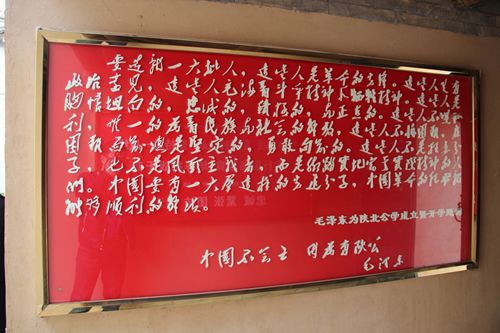 要造就一大批人，这些人是革命的先锋。这些人具有
政治远见，这些人充满着斗争精神和牺牲精神。这些人是
胸怀坦白的，忠诚的，积极的，与正直的。这些人不谋私
利，唯一的为着民族与社会的解放。这些人不怕困难，在
困难面前总是坚定的，勇敢向前的。这些人不是狂妄分
子，也不是风头主义者，而是脚踏实地富于实际精神的人
们。中国要有一大群这样的先进分子，中国革命的任务就
能够顺利的解决。
毛泽东为陕北公学成立暨开学题词
中国不会亡 因为有陕公
毛泽东